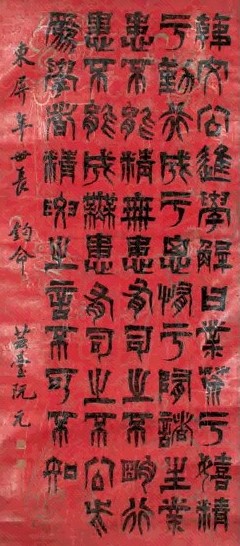 韓文公進學解曰業荒于嬉精
于勤行成于思毀于隨諸生業
患不能精無患有司之不明行
患不能成無患有司之不公此
為學者精明之言不可不知
東屏年世長 鈞命 芸臺阮元